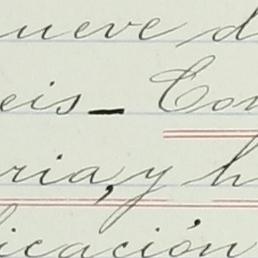 nueve d
eis_ Con
ria, y h
licación